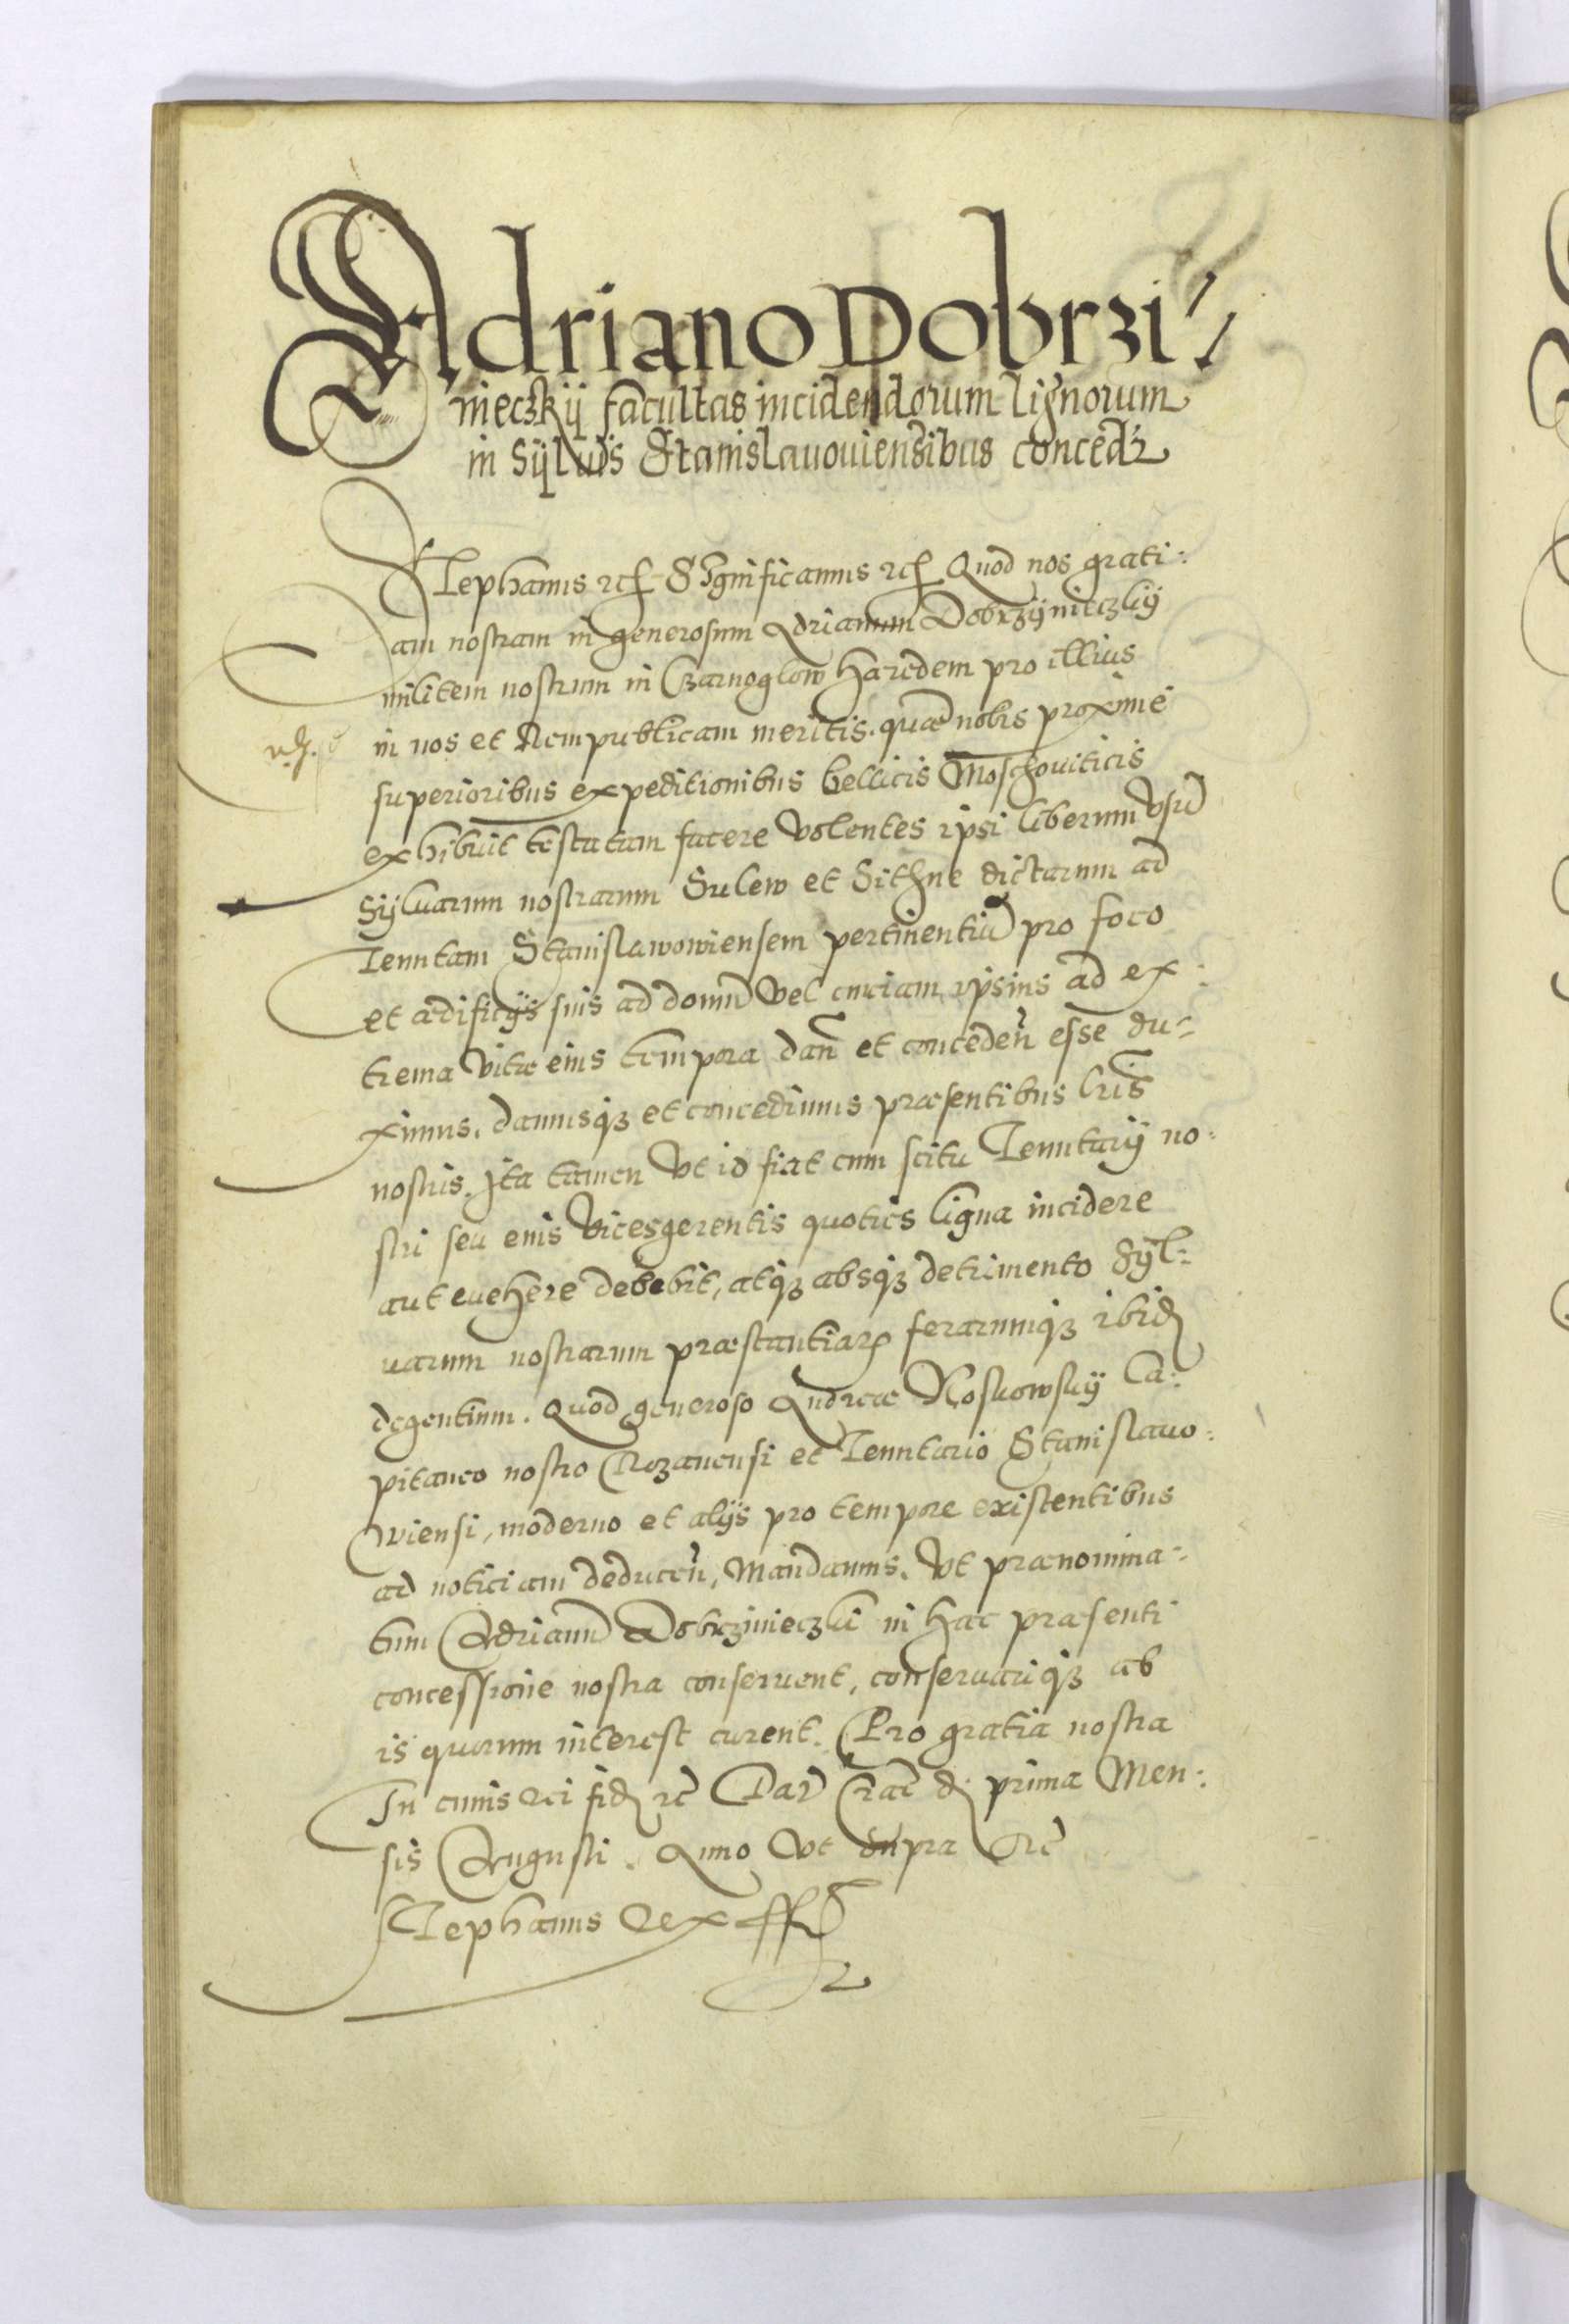 Adriano Dobrzi⸗
nieczkij facultas incidendorum lignorum
in Sijluis Stanislauouiensibus concedr
Stephanus etc. Significamus etc. Quod nos grati:
am nostram in generosum Adrianum Dobrzijnieczkij
militem nostrum in Czarnoglow Hæredem pro illius
in nos et Rempublicam meritis. quæ nobis proximè
superioribus expeditionibus bellicis Moschouiticis
exhibuit testatam facere volentes ipsi liberum vsũ
Sijluarum nostrarum Sulew et Sithne dictarum ad
Tenutam Stanislawowiensem pertinentiũ pro foco
et ædificijs suis ad domũ vel curiam ipsius ad ex:
trema vitæ eius tempora dañ et conceden̄ esse du⸗
ximus. damusqz et concedimus præsentibus lr̃is
nostris. Ita tamen vt id fiat cum scitu Tenutarij no:
stri seu eius vicesgerentis quoties ligna incidere
aut euehere debebit, atqz absqz detrimento Sÿl:
uarum nostrarum præstantiarꝝ ferarumqz ibid
degentium. Quod generoso Andreæ Noskowskij Ca:
pitaneo nostro Rozanensi et Tenutario Stanislauo:
viensi, moderno et alijs pro tempore existentibus
ad noticiam deducen̄, Mandamus. Vt prænomina⸗
tum Adrianũ Dobrzinieczki in hac præsenti
concessione nostra conseruent, conseruariqz ab
is quorum interest curent. Pro gratia nostra
In cuius rei fid etc Dat̃ Crac̃ d. prima Men:
sis Augusti. Anno vt supra etc
Stephanus Rex sst